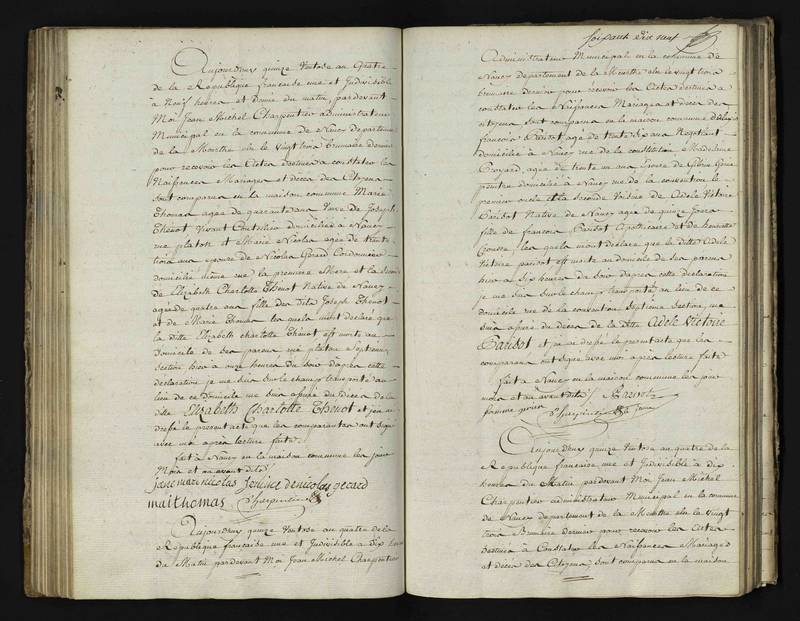 Aujourdhuy quinze Ventose an Quatre
de la Republique francaise une et Indivisible
à Neuf heures et Demie du matin, pardevant
Moi Jean Michel Charpentier administrateur
Municipal en la commune de Nancy departement
de la Meurthe elu le vingt trois brumaire dernier
pour recevoir les Actes destinés a constater les
Naissances Mariages et deces des Citoyens
sont comparus en la maison commune Marie
Thomas agée de quarante ans veuve de Joseph
Thénot vivant domiciliée à Nancy
rue platon et Marie Nicolas agée de trente
trois ans epouse de Nicolas Gerard Cordonnier
domiciliée même rue la premiere Mere et la seconde
de Elizabeth Charlotte Thenot Native de Nancy
agée de quatre ans fille des dits Joseph Thenot
et de Marie Thomas les quels m'ont déclaré que
la ditte Elizabeth charlotte Thénot est morte au
Domicile de ses parens rue platon Septieme
section hier a onze heures du soir d'après cette
declaration je me suis sur le champ transporté au
lieu de ce Domicile me suis assuré du deces de la
ditte Elizabeth Charlotte Thenot et j'en ai
dressé le present acte que les comparantes ont signé
avec moi après lecture faite.
fait à Nancy en la maison commune les jour
Mois et an avant dits
jane mari nicolas fame de nicolas gerard
mari thomas Charpentier
Aujourdhuy quinze Ventose an quatre de la
Republique francaise une et Indivisible à Dix heures
du Matin pardevant Moi Jean Michel Charpentier
soixante Dix neuf
Administrateur Municipal en la commune de
Nancy departement de la Meurthe elu le vingt trois
brumaire dernier pour recevoir les Actes destinés a
constater les Naissances Mariages et deces des
citoyens sont comparus en la maison commune
francois Parisot, agé de trente six ans Negotiant
domicilié à Nancy rue de la constitution et Madelaine
agée de trente un ans
peintre domicilié à Nancy rue de la convention le
premier oncle et la seconde Voisine de Adele Victoire
Parisot Native de Nancy agée de quinze jours
fille de francois Parisot Apothicaire et de henriette
les quels m'ont declaré que la ditte Adele
Victoire parisot est morte au domicile de ses parens
hier a six heures du soir d'apres cette déclaration
je me suis sur le champ transporté au lieu de ce
domicile rue de la convention Septieme section, me
suis assuré du Deces de la ditte Adele Victoire
Parisot et j'ai dressé le present acte que les
comparans ont signé avec moi après lecture faite
fait à Nancy en la maison commune les jour
mois et an avant dits Parisot
famme Charpentier
Aujourdhuy quinze Ventose an quatre de la
Republique francaise une et Indivisible à dix
heures du Matin pardevant Moi Jean Michel
Charpentier administrateur Municipal en la commune
de Nancy departement de la Meurthe elu le vingt
trois Brumaire dernier pour recevoir les Actes
destinés à Constater les Naissances Mariages
et deces des Citoyens, sont comparus en la maison